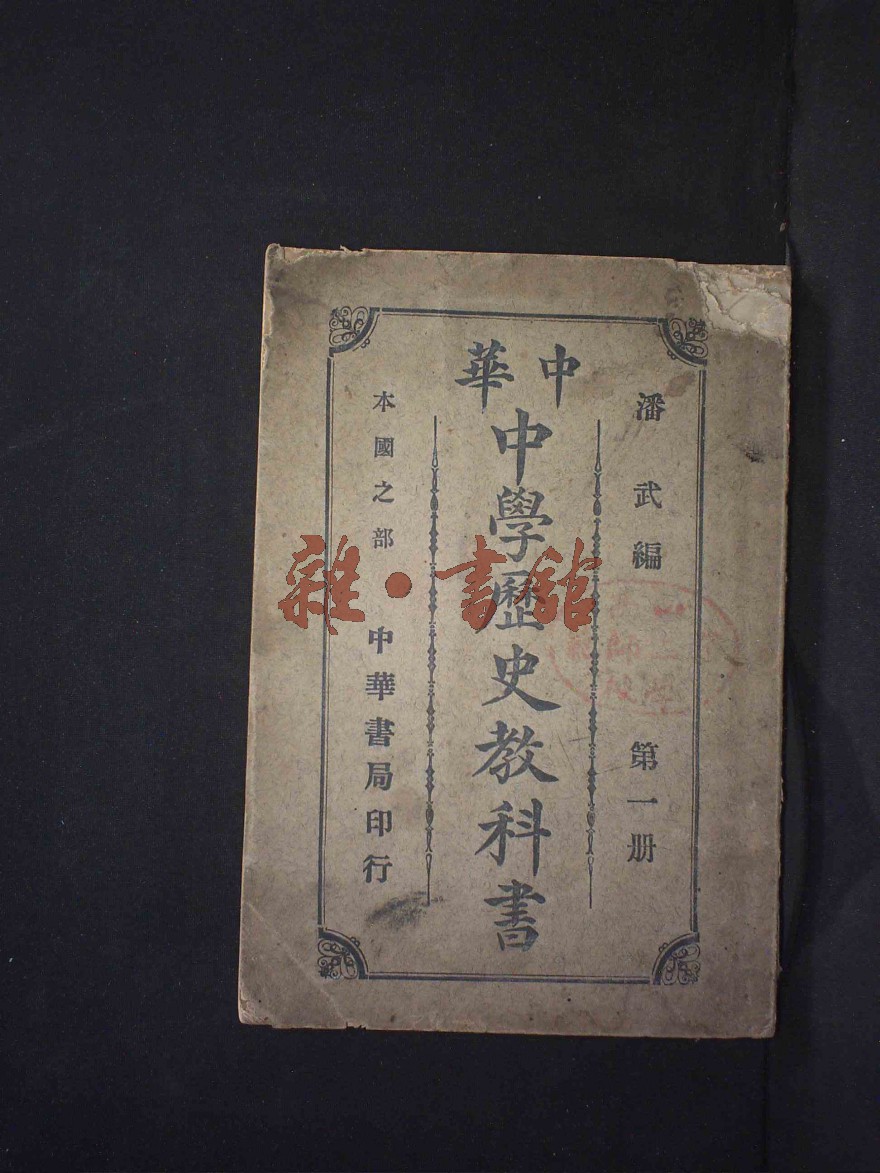 潘武編 第一册
中華
中學歷史教科書
本國之部 中華書局印行
雜·書館